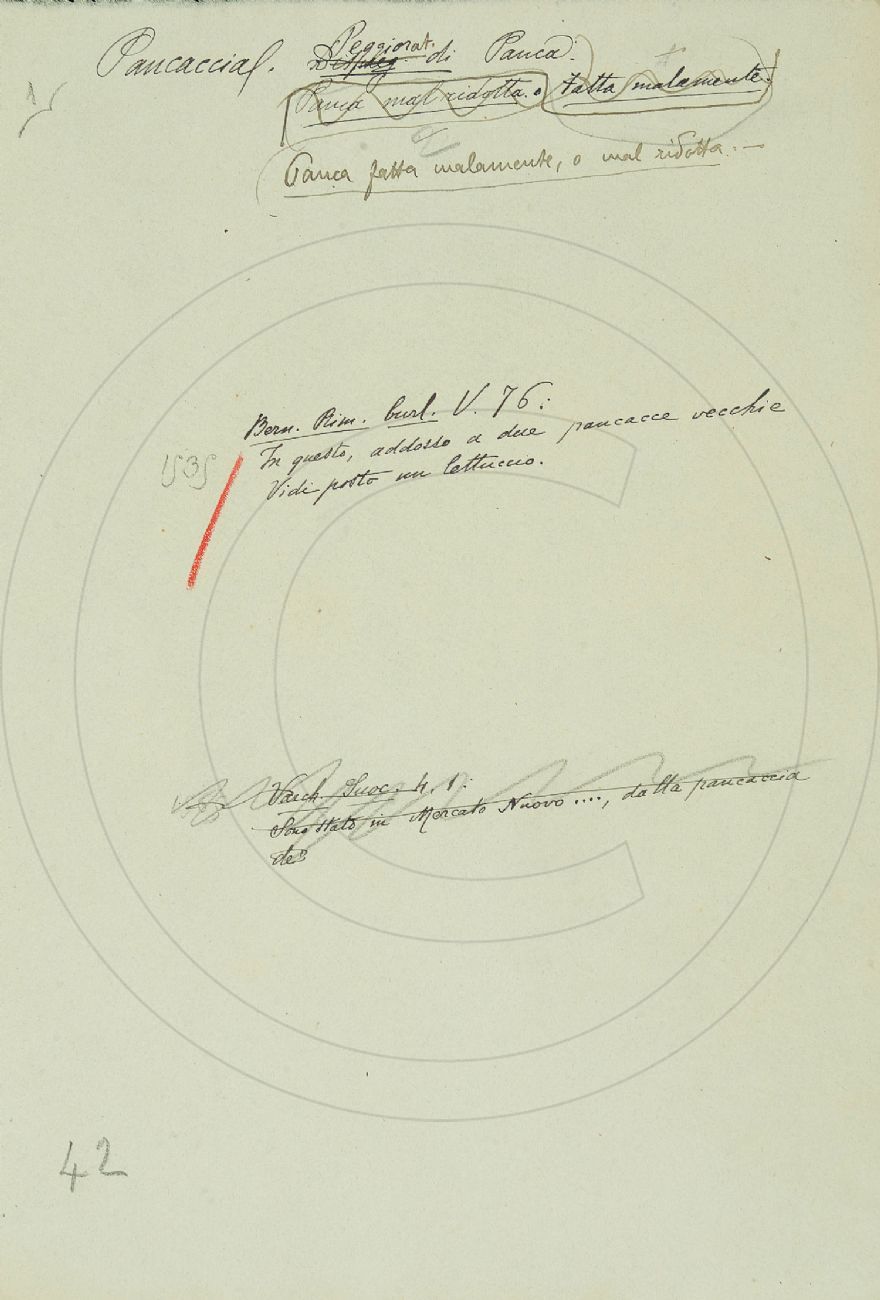 Peggiorat.
Pancaccia. Dispreg. di Panca:
Panca mal ridotta o fatta malamente.
Panca fatta malamente, o mal ridotta. —
Bern. Rim. burl. V. 76:
In questo, addosso a due pancacce vecchie
1535
Vidi posto un lettuccio.
Varch. Suoc. 4. 1:
Sono stato in Mercato Nuovo ...., dalla pancaccia
de'
42